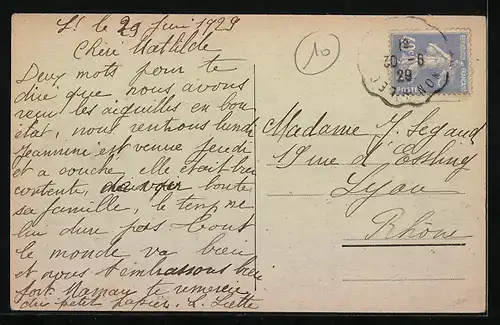 St. le 29 Juin 1929
Chéri Mathilde
Deux mots pour te
dire que nous avons
reçu les aiguilles en bon
état, nous rentrons lundi
Jeannine est venue jeudi
et a couché, elle était bien
contente, de voir toute
sa famille, le temps ne
lui dure pas tout
le monde va bien
et nous t'embrassons bien
fort. Maman te remercie
du petit papier. L. Lette
10
12
30 - 6
29
Madame J. Segaud
19 rue d'Essling
Lyon
Rhône